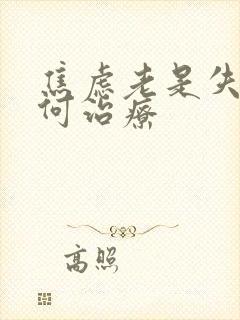 焦虑老是失
何治疗
高照